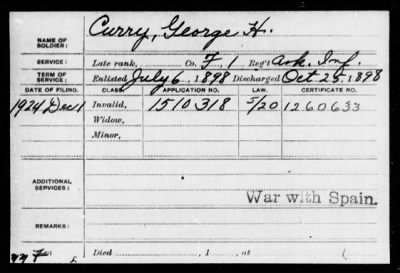 NAME OF SOLDIER: Curry, George H.
SERVICE: Late rank, Co. F, 1 Reg't Ark. Inf.
TERM OF SERVICE: Enlisted July 6, 1898 Discharged Oct 25, 1898
DATE OF FILING. CLASS. APPLICATION NO. LAW. CERTIFICATE NO.
1924 Dec 1 Invalid, 1510 318 5/20 1260633
Widow,
Minor,
ADDITIONAL SERVICES:
War with Spain.
REMARKS:
Died , 1 , at